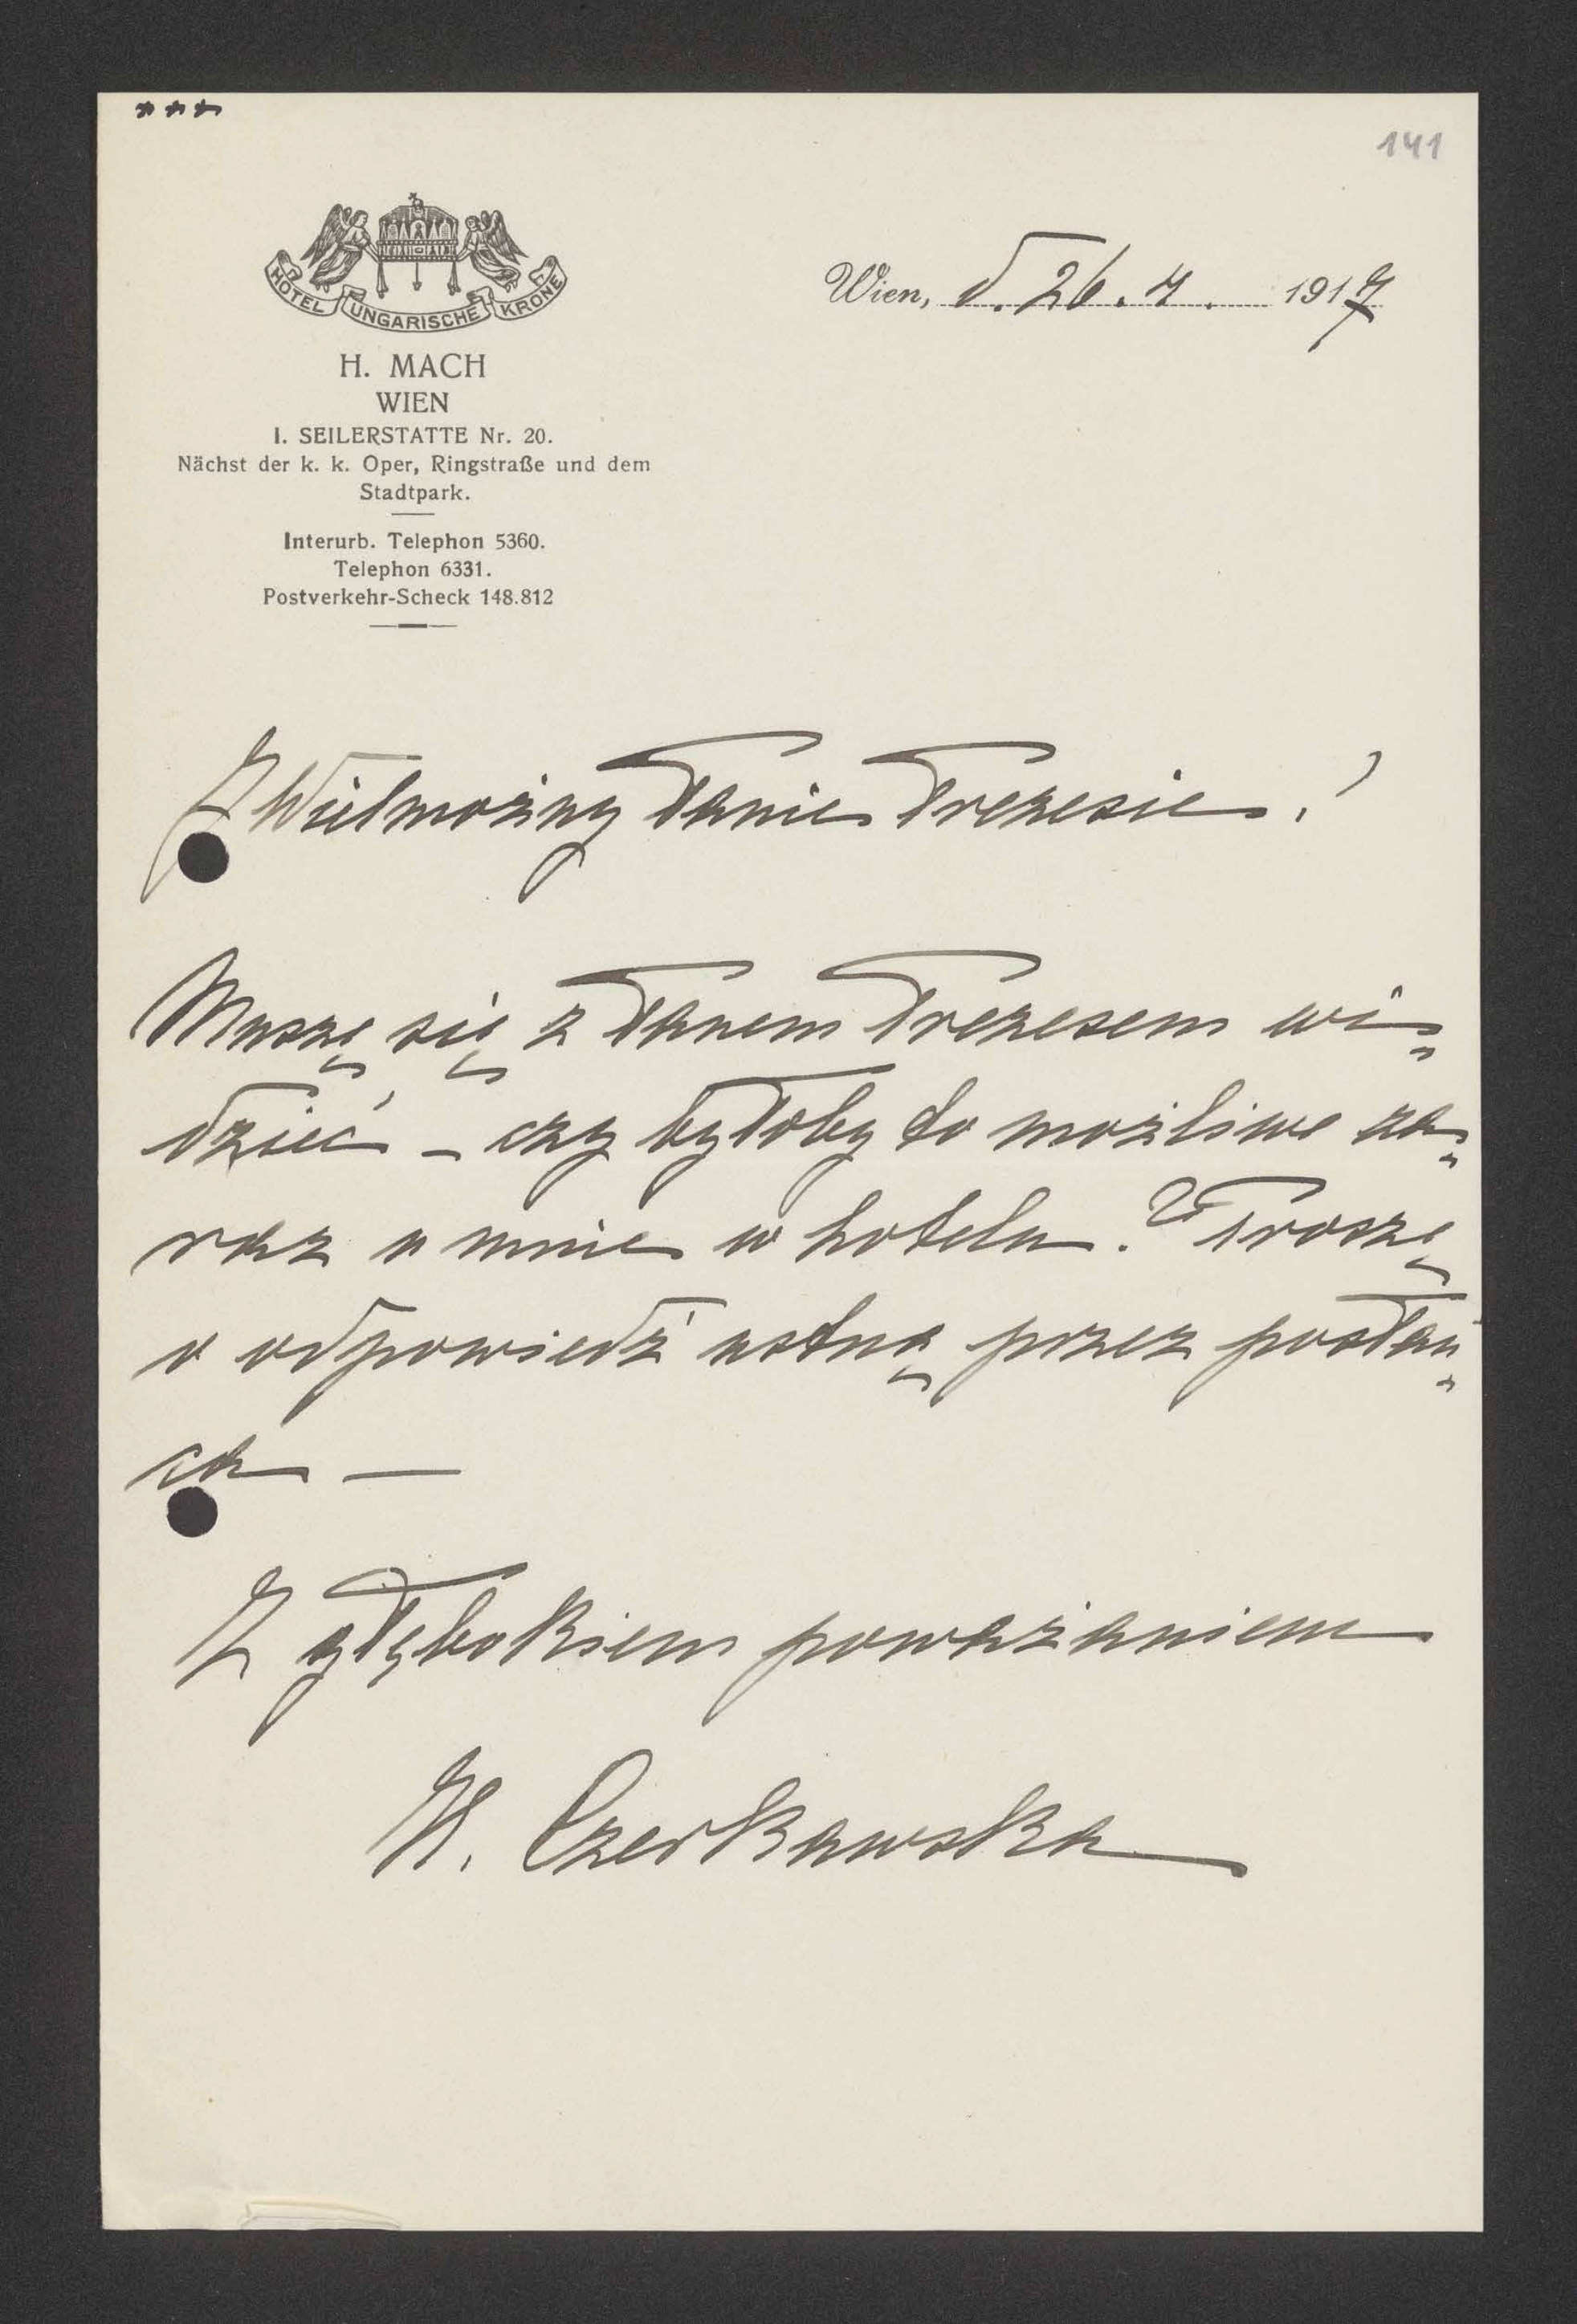 ***
141
HOTEL UNGARISCHE KRONE
H. MACH
WIEN
I. SEILERSTATTE Nr. 20.
Nächst der k. k. Oper, Ringstraße und dem
Stadtpark.
Interurb. Telephon 5360.
Telephon 6331.
Postverkehr-Scheck 148.812
Wien, d. 26. 4. 1917
JWielmożny Panie Prezesie!
Muszę się z Panem Prezesem wi-
dzieć – czy byłoby to możliwe za-
raz u mnie w hotelu? Proszę
o odpowiedź ustną przez posłań-
ca —
Z głębokiem poważaniem
W. Czerkawska